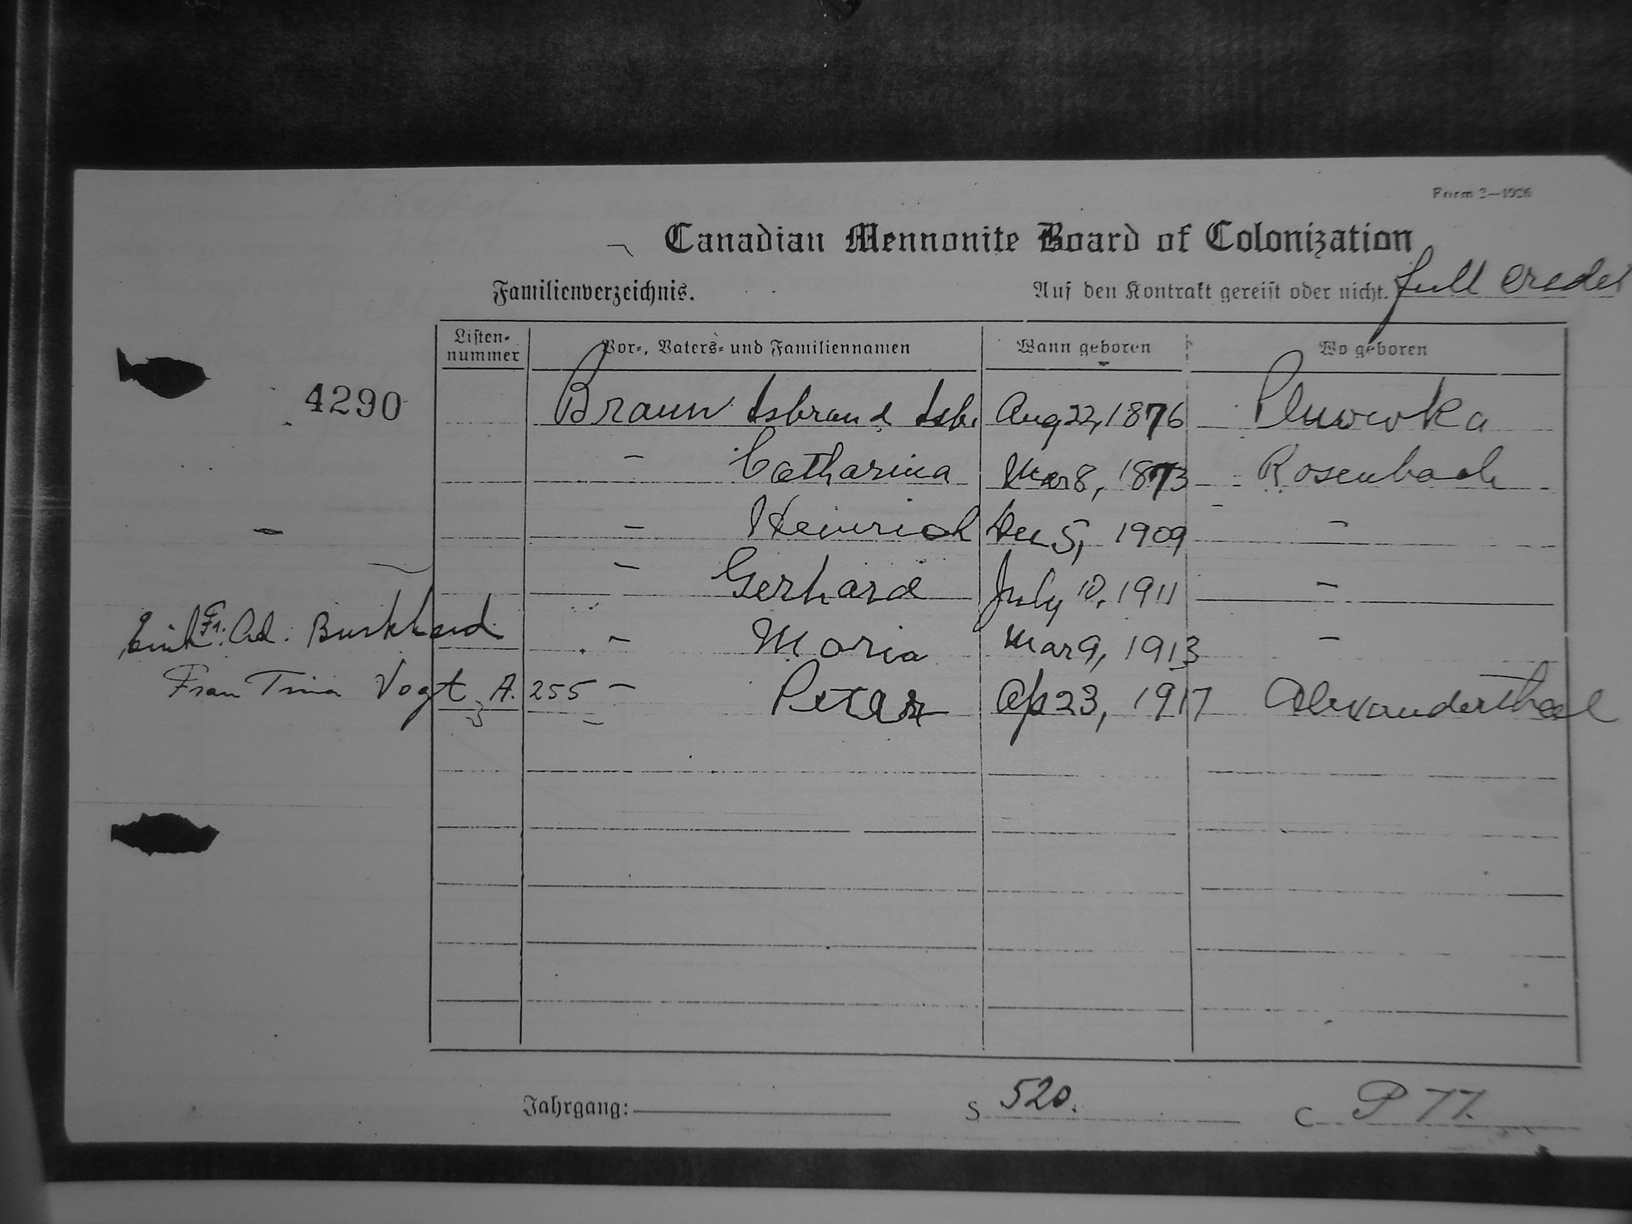 Form 2—1926
Canadian Mennonite Board of Colonization
Familienverzeichnis.
Auf den Kontrakt gereist oder nicht. full credit
Listen-nummer
Vor-, Vaters- und Familiennamen
Wann geboren
Wo geboren
4290
Braun Isbrand Isbr. Aug 22, 1876
— Catharina Mar 8, 1873 Rosenbach
— Heinrich Dec 5, 1909 —
— Gerhard July 10, 1911 —
Fr. Ad. Burkhard — Maria Mar 9, 1913 —
Frau Tina Vogt A. 255 — Peter Ap 23, 1917 Alexanderthal
Jahrgang: S 520. C P 77.